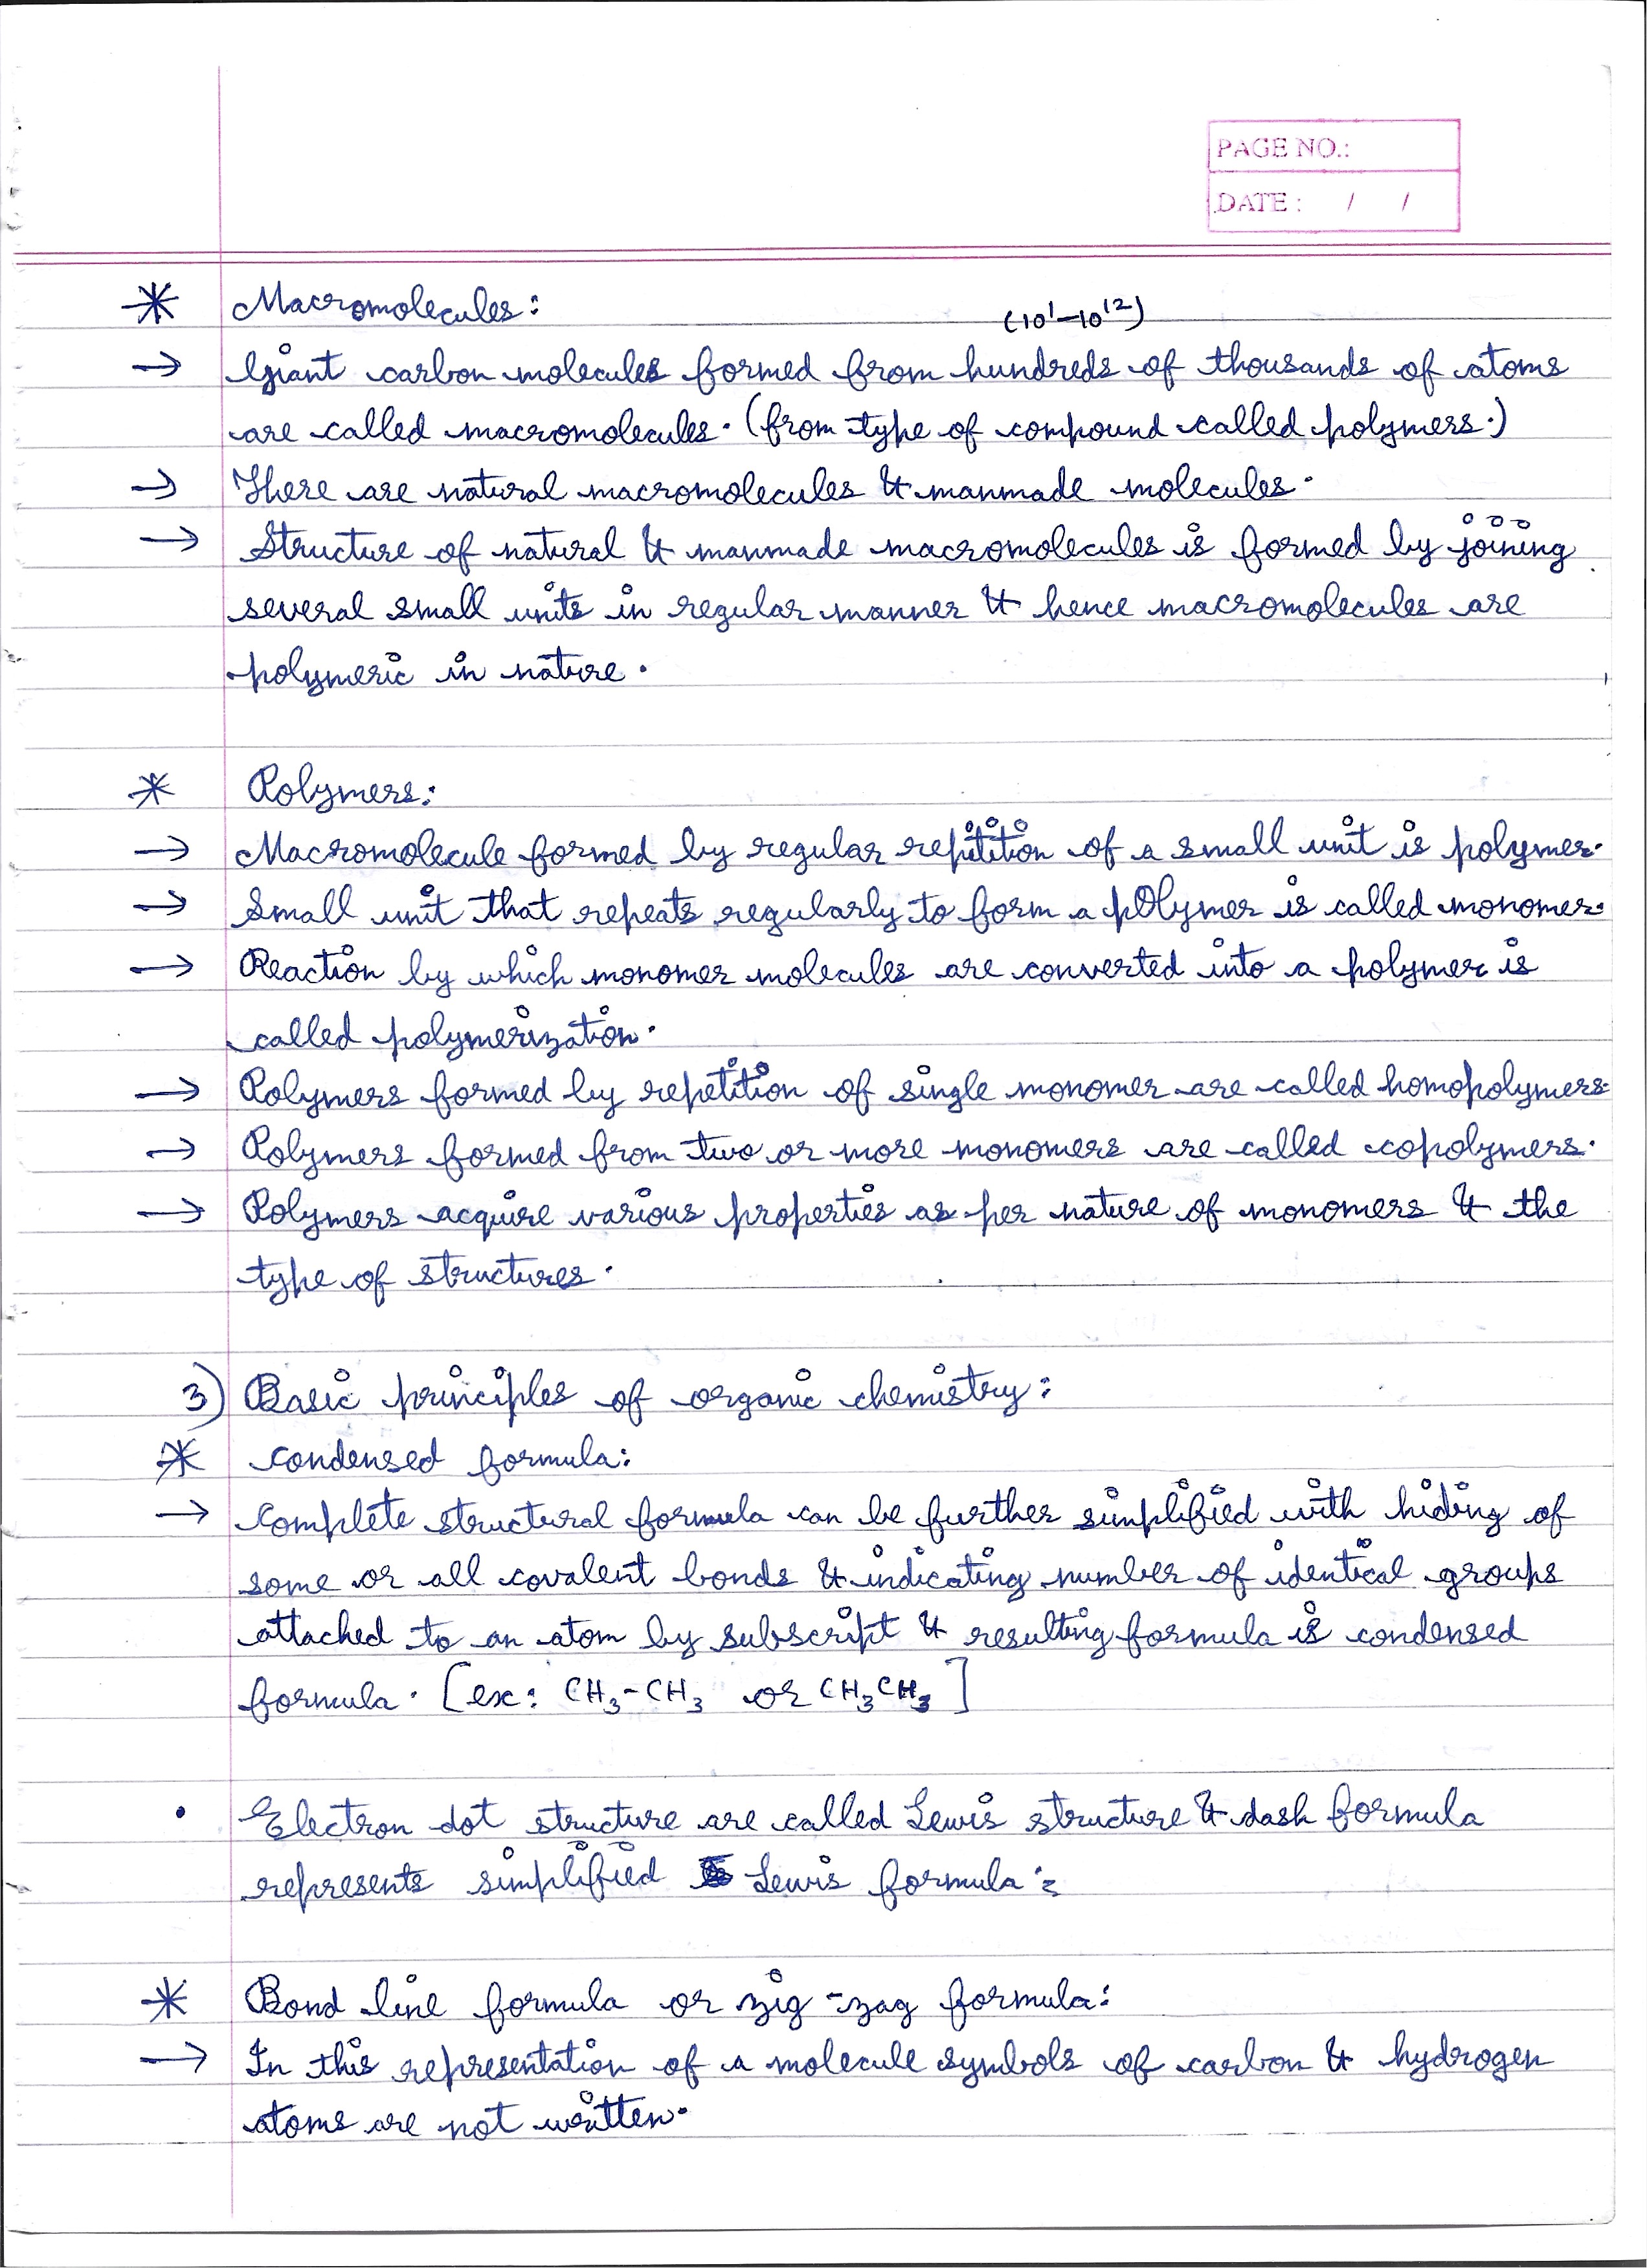 PAGE NO.:
DATE : / /
* Macromolecules:
(10¹-10¹²)
→ Giant carbon molecules formed from hundreds of thousands of atoms
are called macromolecules. (from type of compound called polymers.)
→ There are natural macromolecules & manmade molecules.
→ Structure of natural & manmade macromolecules is formed by joining
several small units in regular manner & hence macromolecules are
polymeric in nature.
* Polymers:
→ Macromolecule formed by regular repitition of a small unit is polymer.
→ Small unit that repeats regularly to form a polymer is called monomer.
→ Reaction by which monomer molecules are converted into a polymer is
called polymerization.
→ Polymers formed by repetition of single monomer are called homopolymers.
→ Polymers formed from two or more monomers are called copolymers.
→ Polymers acquire various properties as per nature of monomers & the
type of structures.
3) Basic principles of organic chemistry:
* Condensed formula:
→ Complete structural formula can be further simplified with hiding of
some or all covalent bonds & indicating number of identical groups
attached to an atom by subscript & resulting formula is condensed
formula. [ex: CH₃-CH₃ or CH₃CH₃]
• Electron dot structure are called Lewis structure & dash formula
represents simplified Lewis formula:
* Bond line formula or zig-zag formula:
→ In this representation of a molecule symbols of carbon & hydrogen
atoms are not written.